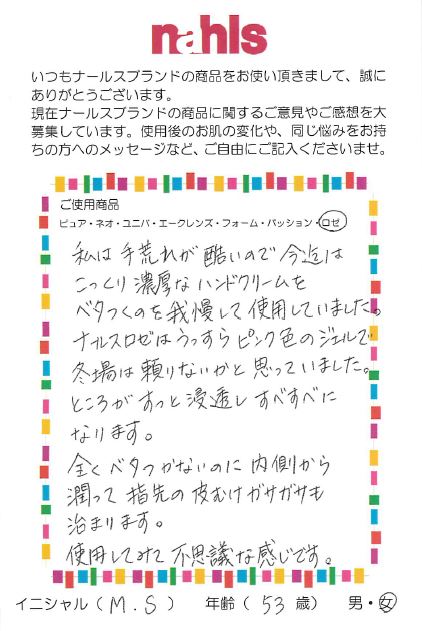 nahls
いつもナールスブランドの商品をお使い頂きまして、誠に
ありがとうございます。
現在ナールスブランドの商品に関するご意見やご感想を大
募集しています。使用後のお肌の変化や、同じ悩みをお持
ちの方へのメッセージなど、ご自由にご記入くださいませ。
ご使用商品
ピュア・ネオ・ユニバ・エークレンズ・フォーム・パッション・ロゼ
私は手荒れが酷いので今迄は
こっくり濃厚なハンドクリームを
ベタつくのを我慢して使用していました。
ナールスロゼはうっすらピンク色のジェルで
冬場は頼りないかと思っていました。
ところがすっと浸透しすべすべに
なります。
全くベタつかないのに内側から
潤って指先の皮むけガサガサも
治まります。
使用してみて不思議な感じです。
イニシャル(M.S) 年齢(53歳) 男・女